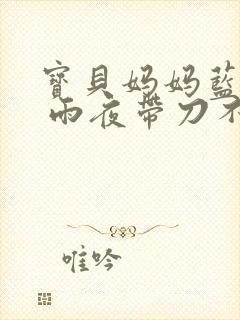 寶貝妈妈藍
雨夜帶刀不
唯吟